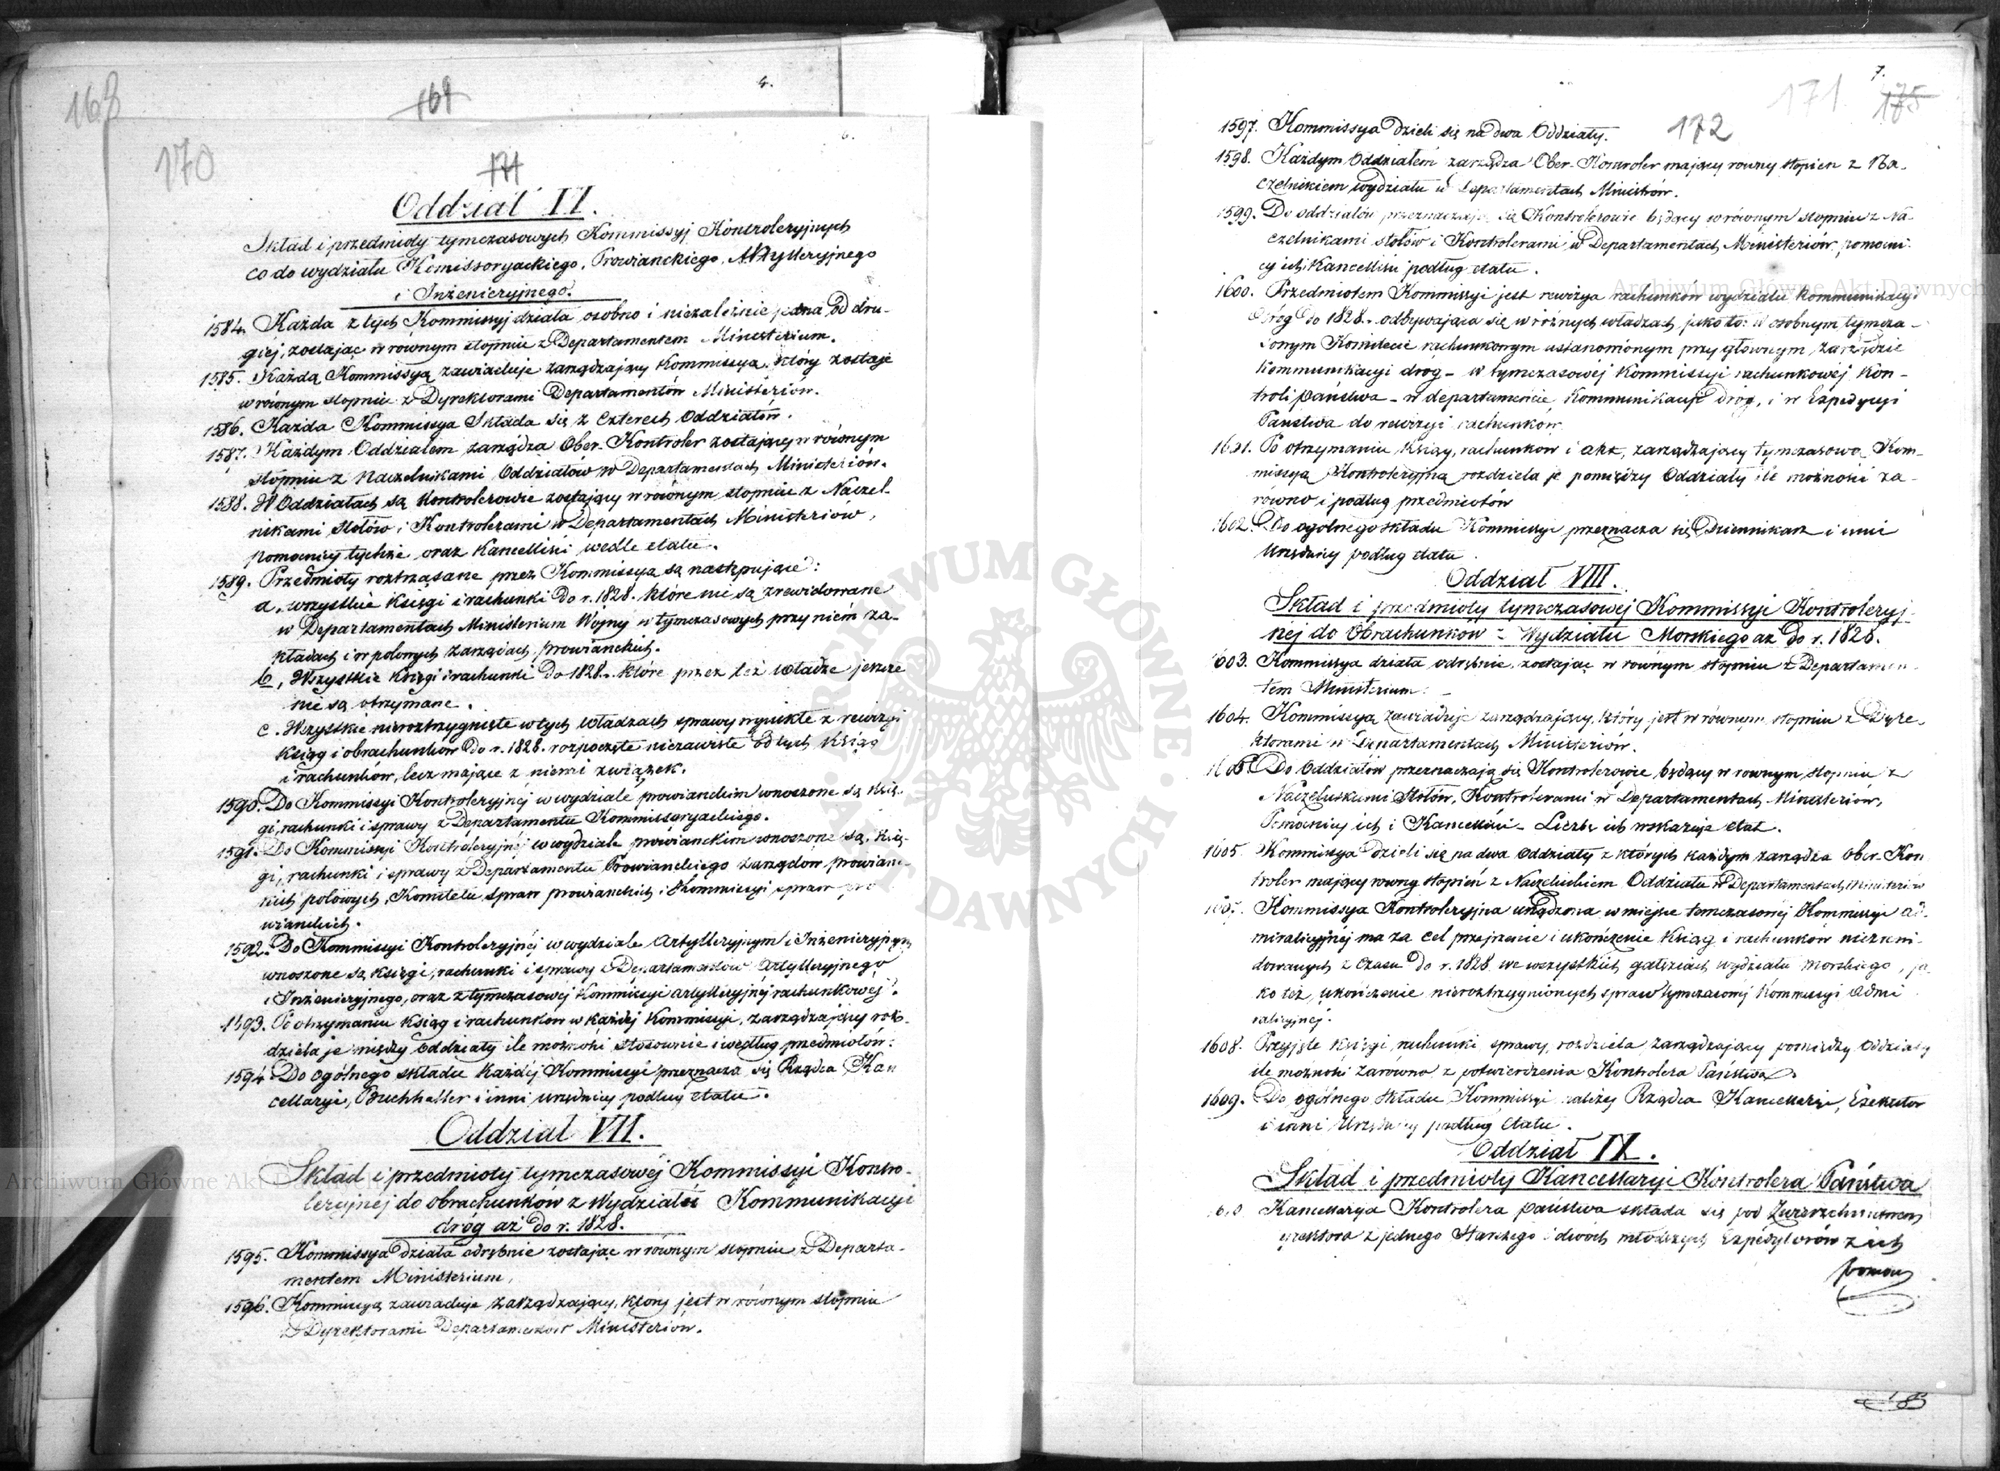 168
169
4.
6.
170
171
Oddział VI.
Skład i przedmioty tymczasowych Kommissyj Kontroleryjnych
co do wydziału Komissoryackiego, Prowianckiego, Artylleryjnego
i Inżenieryjnego.
1584. Każda z tych Kommissyj działa osobno i niezależnie jedna od dru-
giej, zostając w równym stopniu z Departamentem Ministerium.
1585. Każdą Kommissyą zawiaduje zarządzający Kommissya, który zostaje
w równym stopniu z Dyrektorami Departamentów Ministeriów.
1586. Każda Kommissya Składa się z czterech Oddziałów.
1587. Każdym Oddziałem zarządza Ober-Kontroler zostający w równym
stopniu z Naczelnikami Oddziałów w Departamentach Ministeriów.
1588. W Oddziałach są Kontrolerowie zostający w równym stopniu z Naczel-
nikami Stołów i Kontrolerami w Departamentach Ministeriów,
pomocnicy tychże oraz Kancelliści wedle etatu.
1589. Przedmioty roztrząsane przez Kommissya są następujące:
a. wszystkie księgi i rachunki do r. 1828. które nie są zrewidowane
w Departamentach Ministerium Wojny w tymczasowych przy niem za-
kładach i w polowych zarządach prowianckich.
b, Wszystkie księgi i rachunki do 1828. które przez też władze jeszcze
nie są otrzymane.
c. Wszystkie nieroztrzygnięte w tych władzach sprawy wynikłe z rewizyi
ksiąg i obrachunków do r. 1828. rozpoczęte niezawisłe od tych ksiąg
i rachunków, lecz mające z niemi związek.
1590. Do Kommissyi Kontroleryjnéj w wydziale prowianckim wnoszone są księ-
gi, rachunki i sprawy z Departamentu Kommissoryackiego.
1591. Do Kommissyi Kontroleryjnéj w wydziale prowianckim wnoszone są, księ-
gi, rachunki i sprawy z Departamentu Prowianckiego zarządów prowianc-
kich polowych, Komitetu spraw prowianckich i Kommissyi spraw pro
wianckich.
1592. Do Kommissyi Kontroleryjnéj w wydziale Artylleryjnym i Inżenieryjnym
wnoszone są księgi, rachunki i sprawy z Departamentów Artylleryjnego
i Inżenieryjnego, oraz z tymczasowej Kommissyi artylleryjnéj rachunkowej.
1593. Po otrzymaniu ksiąg i rachunków w każdéj Kommissyi, zarządzający roz-
dziela je między Oddziały ile możności stosownie i według przedmiotów.
1594. Do Ogólnego składu każdéj Kommissyi przeznacza się Rządca Kan
cellaryi, Buchhalter i inni urzędnicy podług etatu.
Oddział VII.
Skład i przedmioty tymczasowéj Kommissyi Kontro-
leryjnéj do obrachunków z Wydziału Kommunikacyi
dróg aż do r. 1828.
1595. Kommissya działa odrębnie zostając w równym stopniu z Departa-
mentem Ministerium,
1596. Kommissyą zawiaduje zarządzający, który jest w równym stopniu
z Dyrektorami Departamentów Ministeriów.
7.
171
175
172
1597. Kommissya dzieli się na dwa Oddziały.
1598. Każdym Oddziałem zarządza Ober-Kontroler mający równy stopień z Na-
czelnikiem wydziału w Departamentach Ministrów.
1599. Do oddziałów przeznaczają się Kontrolerowie będący w równym stopniu z Na-
czelnikami stołów i Kontrolerami w Departamentach Ministeriów, pomocni-
cy ich, Kancelliści podług etatu.
1600. Przedmiotem Kommissyi jest rewizya rachunków wydziału Kommunikacyi
dróg do 1828. odbywająca się w różnych władzach, jako to: w osobnym tymcza-
sowym Komitecie rachunkowym ustanowionym przy głównym zarządzie
Kommunikacyi dróg - w tymczasowej Kommissyi rachunkowej Kon-
troli państwa - w departamencie Kommunikacyi dróg, i w Expedycyi
Państwa do rewizyi rachunków.
1601. Po otrzymaniu Ksiąg, rachunków i akt, zarządzający tymczasową Kom-
missyą Kontroleryjną rozdziela je pomiędzy Oddziały ile możności za-
równo i podług przedmiotów
1602. Do ogólnego składu Kommissyi przeznacza się Dziennikarz i inni
Urzędnicy podług etatu.
Oddział VIII.
Skład i przedmioty tymczasowej Kommissyi Kontroleryj-
néj do Obrachunków z Wydziału Morskiego aż do r. 1828.
1603. Kommissya działa odrębnie, zostając w równym stopniu z Departamen-
tem Ministerium.
1604. Kommissyą zawiaduje zarządzający, który jest w równym stopniu z Dyre-
ktorami w Departamentach Ministeriów.
1605 Do Oddziałów przeznaczają się Kontrolerowie, będący w równym stopniu z
Naczelnikami Stołów, Kontrolerami w Departamentach Ministeriów,
Pomocnicy ich i Kancelliści - Liczbę ich wskazuje etat.
1605. Kommissya dzieli się na dwa Oddziały z których każdym zarządza Ober-Kon
troler mający równy stopień z Naczelnikiem Oddziału w Departamentach Ministeriów
1607. Kommissya Kontroleryjna urządzona w miejsce tymczasowéj Kommissyi ad-
miralicyjnéj ma za cel przejrzenie i ukończenie Ksiąg i rachunków niezrewi-
dowanych z czasu do r. 1828 we wszystkich gałęziach wydziału morskiego, ja
ko też, ukończenie nieroztrzygnionych spraw tymczasowéj Kommissyi Admi
ralicyjnéj.
1608. Przyjęte Księgi, rachunki, sprawy, rozdziela zarządzający pomiędzy Oddziały
ile możności zarówno z potwierdzenia Kontrolera Państwa.
1609. Do ogólnego składu Kommissyi należą Rządca Kancellaryi, Exekutor
i inni Urzędnicy podług Etatu.
Oddział IX.
Skład i przedmioty Kancellaryi Kontrolera Państwa
1610 Kancellarya Kontrolera państwa składa się pod Zwierzchnictwem
Dyrektora z jednego Starszego i dwóch młodszych Expedytorów z ich
pomocn
183
ARCHIWUM GŁÓWNE AKT DAWNYCH
Archiwum Główne Akt Dawnych
Archiwum Główne Akt Dawnych